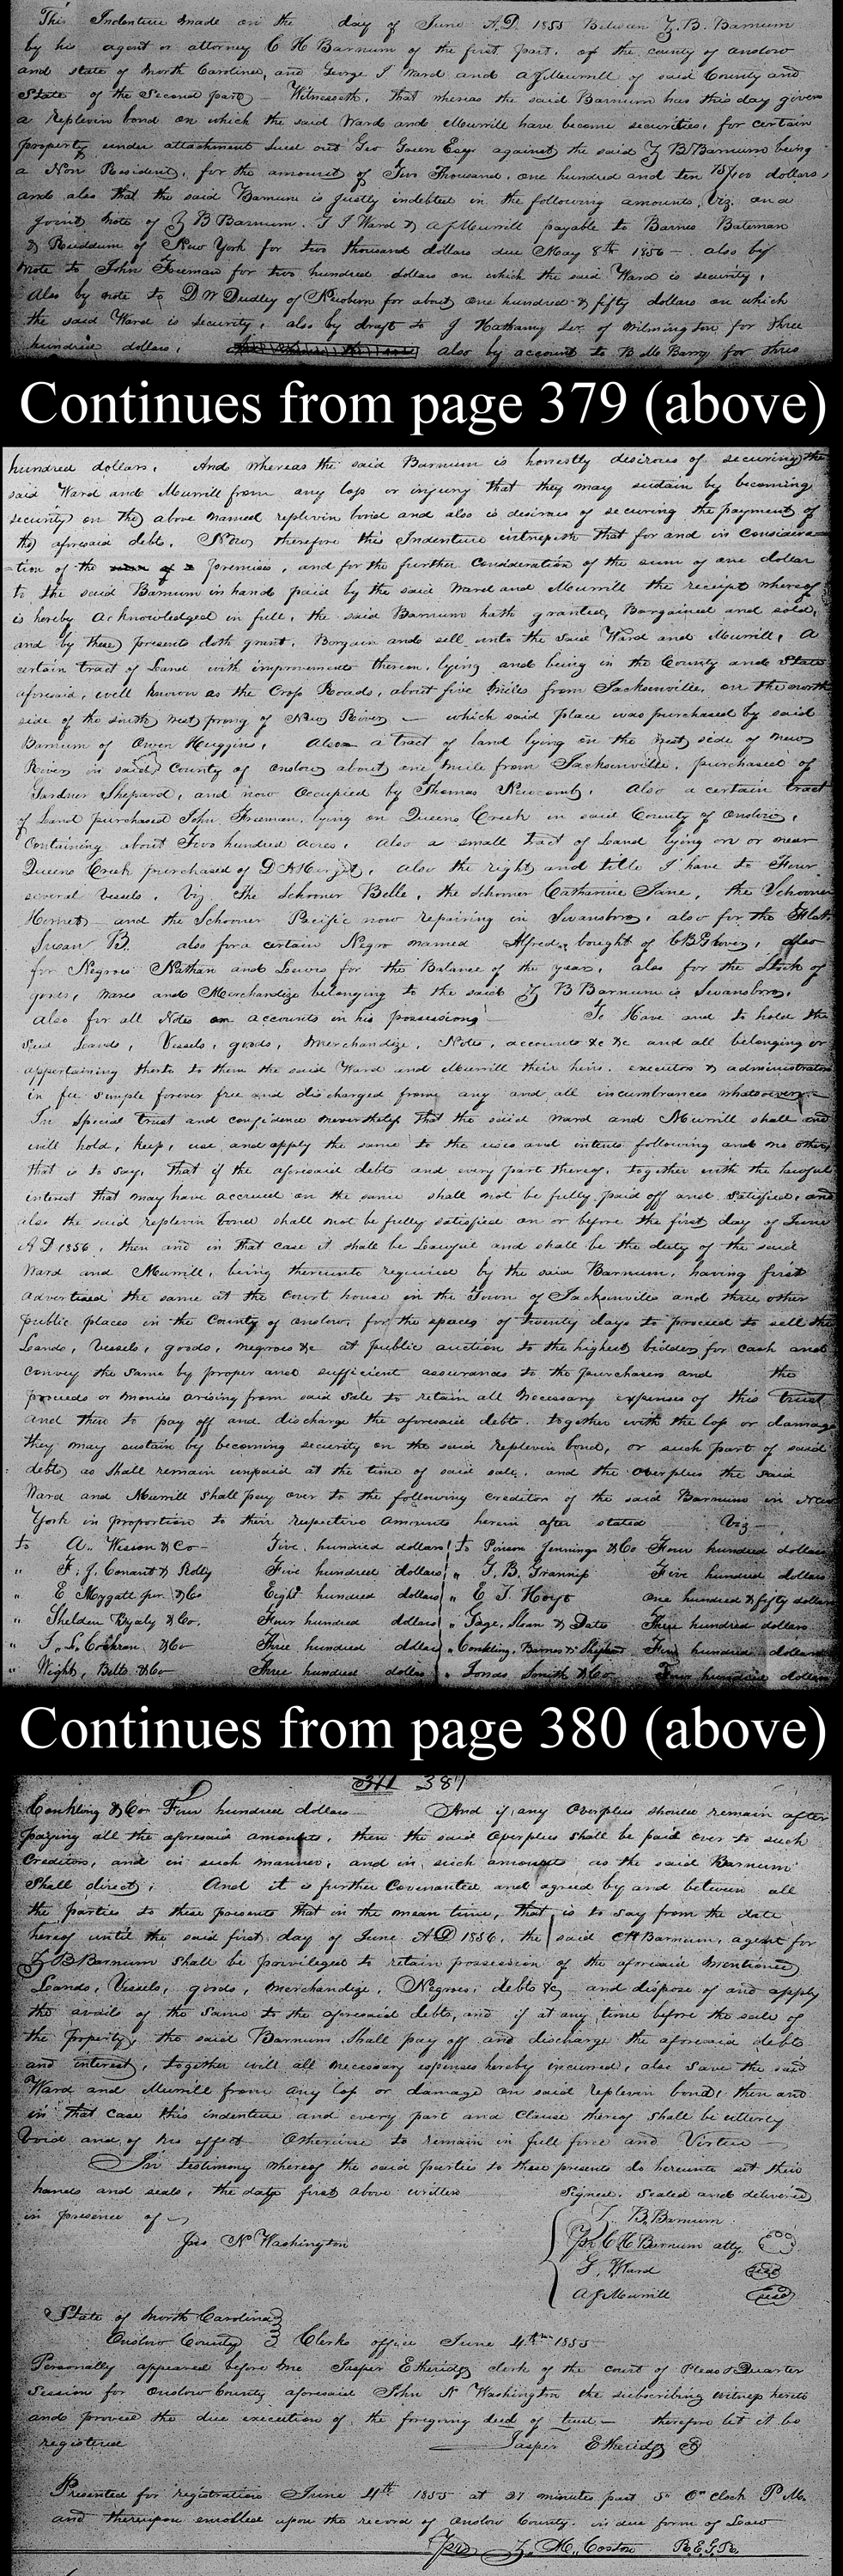 This Indenture made on the day of June A.D. 1855 Between Z. B. Barnum
by his agent or attorney C H Barnum of the first part, of the county of Onslow
and state of North Carolina, and George J Ward and A J Murrill of said County and
State of the Second part, Witnesseth, that whereas the said Barnum has this day given
a replevin bond on which the said Ward and Murrill have become securities, for certain
property under attachment sued out Geo Green Esqr against the said Z B Barnum being
a Non Resident, for the amount of Two Thousand, one hundred and ten 75/100 dollars,
and also that the said Barnum is justly indebted in the following amounts, Viz. on a
joint note of Z B Barnum. G J Ward & A J Murrill payable to Barnes Bateman
& Ruddum of New York for two thousand dollars due May 8th 1856 - also by
note to John Freeman for two hundred dollars on which the said Ward is security,
Also by note to D W Dudley of Newbern for about one hundred & fifty dollars on which
the said Ward is security, also by draft to J Hathaway Sr. of Wilmington for three
hundred dollars, also by account to B M Barry for three
Continues from page 379 (above)
hundred dollars, And whereas the said Barnum is honestly desirous of securing the
said Ward and Murrill from any loss or injury that they may sustain by becoming
security on the above named replevin bond and also is desirous of securing the payment of
the aforesaid debts. Now therefore this Indenture witnesseth that for and in considera=
=tion of the premises, and for the further consideration of the sum of one dollar
to the said Barnum in hand paid by the said Ward and Murrill the receipt whereof
is hereby acknowledged in full, the said Barnum hath granted, Bargained and sold,
and by these presents doth grant, Bargain and sell unto the said Ward and Murrill, A
certain tract of Land with improvements thereon, lying and being in the County and State
aforesaid, well known as the Cross Roads, about five miles from Jacksonville, on the north
side of the south west prong of New River - which said place was purchased by said
Barnum of Owen Huggins, Also a tract of land lying on the west side of New
River in said County of Onslow about one mile from Jacksonville, purchased of
Gardner Shepard, and now occupied by Thomas Newcomb, Also a certain tract
of Land purchased John Freeman, lying on Queens Creek in said County of Onslow,
Containing about Two hundred acres, Also a small tract of Land lying on or near
Queens Creek purchased of D H Hargit, Also the right and title I have to Four
several Vessels, Viz, the Schooner Belle, the schooner Catharine Jane, the Schooner
Hornet - and the Schooner Pacific now repairing in Swansboro, also for the Flat
Susan B. also for a certain Negro named Alfred, bought of C B Glover, also
for Negroes Nathan and Lewis for the Balance of the year, also for the Stock of
goods, wares and Merchandize belonging to the said Z B Barnum is Swansboro,
Also for all Notes on accounts in his possession To Have and to hold the
said Lands, Vessels, goods, Merchandize, Notes, accounts &c &c and all belonging or
appertaining thereto to them the said Ward and Murrill their heirs, executors & administrators
in fee simple forever free and discharged from any and all incumbrances whatsoever
In Special trust and confidence nevertheless that the said Ward and Murrill shall and
will hold, keep, use and apply the same to the uses and intents following and no other,
that is to say, That if the aforesaid debts and every part thereof, together with the lawful
interest that may have accrued on the same shall not be fully paid off and satisfied, and
also the said replevin bond shall not be fully satisfied on or before the first day of June
A D 1856, then and in that case it shall be Lawful and shall be the duty of the said
Ward and Murrill, being thereunto required by the said Barnum, having first
advertised the same at the court house in the Town of Jacksonville and three other
public places in the County of Onslow, for the space of twenty days to proceed to sell the
Lands, Vessels, goods, negroes &c at public auction to the highest bidder for cash and
convey the same by proper and sufficient assurances to the purchasers and the
proceeds or monies arising from said sale to retain all necessary expenses of this trust
and then to pay off and discharge the aforesaid debts. together with the loss or damage
they may sustain by becoming security on the said replevin bond, or such part of said
debts as shall remain unpaid at the time of said sale, and the overplus the said
Ward and Murrill shall pay over to the following creditors of the said Barnum in New
York in proportion to their respective amounts herein after stated Viz
to A. Wesson & Co - Five hundred dollars to Pinson Jennings & Co Four hundred dollars
" F. J. Conant & Five hundred dollars " G. B. Five hundred dollars
" E Moggatt jur. & Co Eight hundred dollars " E T Hoyt one hundred & fifty dollars
" Shelden & Co. Four hundred dollars " Gage, Sloan & Dates Three hundred dollars
" Cochran & Co Three hundred dollars " Conkling, Barnes & Shepard Five hundred dollars
" Wight, Betts & Co Three hundred dollars " Jonas Smith & Co Four hundred dollars
Continues from page 380 (above)
381
Conkling & Co Four hundred dollars And if any overplus should remain after
paying all the aforesaid amounts, then the said overplus shall be paid over to such
creditors, and in such manner, and in such amounts as the said Barnum
shall direct, And it is further covenanted and agreed by and between all
the parties to these presents that in the mean time, that is to say from the date
hereof until the said first day of June A D 1856, the said C H Barnum, agent for
Z B Barnum shall be priviledged to retain possession of the aforesaid mentioned
Lands, Vessels, goods, merchandize, Negroes, debts &c and dispose of and apply
the avails of the same to the aforesaid debts, and if at any time before the sale of
the property, the said Barnum shall pay off and discharge the aforesaid debts
and interest, together will all necessary expenses hereby incurred, also save the said
Ward and Murrill from any loss or damage on said replevin bond, then and
in that case this indenture and every part and clause thereof shall be utterly
Void and of no effect Otherwise to remain in full force and Virtue
In testimony whereof the said parties to these presents do hereunto set their
hands and seals, the date first above written Signed. Sealed and delivered
in presence of
Z. B. Barnum
Jno N Washington
Pr C H Barnum atty.
G. Ward seal
A J Murrill seal
State of North Carolina
Onslow County Clerks office June 4th 1855
Personally appeared before me Jasper Etheridge clerk of the court of Pleas & Quarter
Session for Onslow County aforesaid John N Washington the subscribing witness hereto
and proved the due execution of the foregoing deed of trust - therefore let it be
registered Jasper Etheridge
Presented for registration June 4th 1855 at 27 minutes past 5 O Clock P M.
and thereupon enrolled upon the record of Onslow County. in due form of Law
Z. M. Coston R.E.G.R.